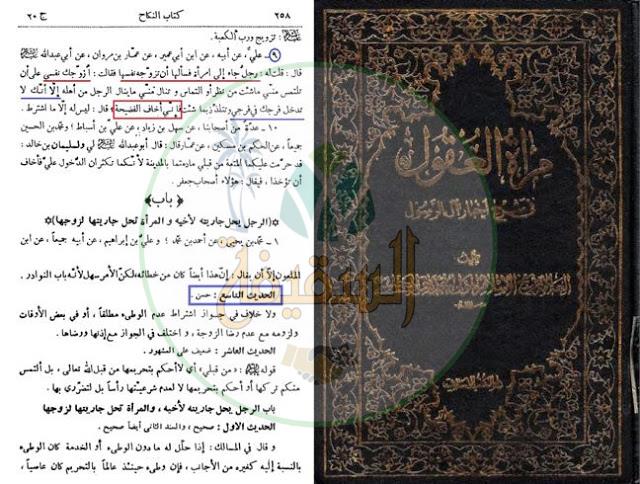 ٢٥٨
كتاب النكاح
ج ٢٠
عليه السلام : تزويج ورب الكعبة .
٩ ـ عليّ ، عن أبيه ، عن ابن أبي عمير ، عن عمّار بن مروان ، عن أبي عبدالله عليه السلام
قال : قلت له : رجل جاء إلى امرأة فسألها أن تزوّجه نفسها فقالت : أزوّجك نفسي على أن
تلتمس منّي ماشئت من نظر أو التماس و تنال منّي ماينال الرجل من أهله إلّا أنّك لا
تدخل فرجك في فرجي وتتلذّذ بما شئت فإنّي أخاف الفضيحة ؟ قال : ليس له إلّا ما اشترط .
١٠ ـ عدّة من أصحابنا ، عن سهل بن زياد ، عن عليّ بن أسباط ؛ وعمّد بن الحسين
جميعاً ، عن الحكم بن مسكين ، عن عمّار قال : قال أبو عبدالله عليه السلام لي ولسليمان بن خالد :
قد حرّمت عليكما المتعة من قبلي مادمتما بالمدينة لأنّكما تكثران الدخول عليّ فأخاف
أن تؤخذا ، فيقال : هؤلاء أصحاب جعفر .
﴿ باب ﴾
﴿ (الرجل يحل جاريته لأخيه و المرأة تحل جاريتها لزوجها) ﴾
١ ـ محمّد بن يحيى ، عن أحمد بن محمّد ؛ و عليّ بن إبراهيم ، عن أبيه جميعاً ، عن ابن
الملعون إلّا أن يقال : إنّ هذا أيضاً كان من خطائه لكنّ الأمر سهل لأنّه باب النوادر .
الحديث التاسع : حسن .
ولا خلاف في جواز اشتراط عدم الوطيء مطلقاً ، أو في بعض الأوقات
ولزومه مع عدم رضا الزوجة ، و اختلف في الجواز مع إذنها ورضاها .
الحديث العاشر : ضعيف على المشهور .
قوله عليه السلام : « من قبلي » أي أحكم بتحريمها من قبل الله تعالى ، بل ألتمس
منكم تركها أو أحكم بتحريمها لا لعدم شرعيّتها رأساً بل لتضرّري بها .
باب الرجل يحل جاريته لأخيه ، والمرأة تحل جاريتها لزوجها
الحديث الاول : صحيح ، والسند الثاني أيضاً صحيح .
و قال في المسالك : إذا حلّل له مادون الوطيء أو الخدمة كان الوطيء
بالنسبة إليه كغيره من الأجانب ، فإن وطيء حينئذ عالماً بالتحريم كان عاصياً ،
مرآة العقول
في شرح أخبار آل الرسول
تأليف
السقيفة